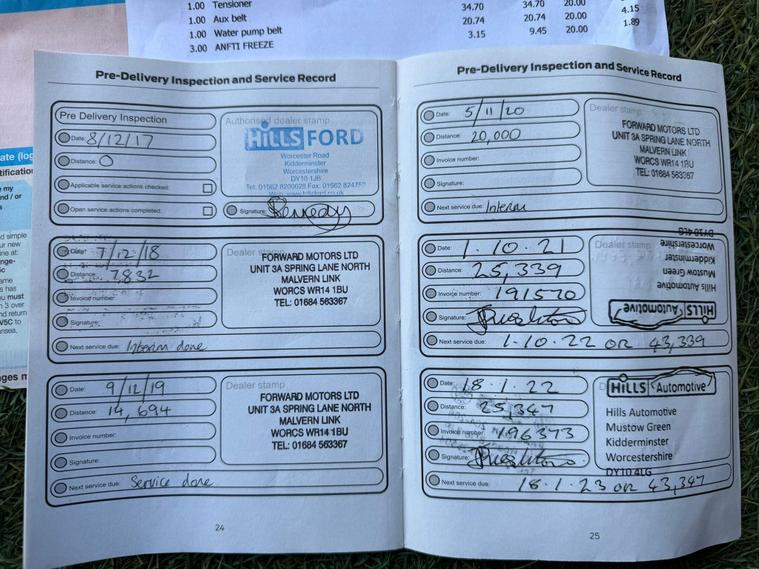 1.00 Tensioner 34.70 34.70 20.00
1.00 Aux belt 20.74 20.74 20.00 4.15
1.00 Water pump belt 3.15 9.45 20.00 1.89
3.00 ANFTI FREEZE
Pre-Delivery Inspection and Service Record
Pre Delivery Inspection
Date: 8/12/17
Distance: 0
Applicable service actions checked:
Open service actions completed:
Authorised dealer stamp
HILLS FORD
Worcester Road
Kidderminster
Worcestershire
DY10 1JB
Signature:
Date: 7/12/18
Distance: 7832
Invoice number:
Signature:
Next service due: Interim done
Dealer stamp
FORWARD MOTORS LTD
UNIT 3A SPRING LANE NORTH
MALVERN LINK
WORCS WR14 1BU
TEL: 01684 563367
Date: 9/12/19
Distance: 14,694
Invoice number:
Signature:
Next service due: Service done
Dealer stamp
FORWARD MOTORS LTD
UNIT 3A SPRING LANE NORTH
MALVERN LINK
WORCS WR14 1BU
TEL: 01684 563367
24
Pre-Delivery Inspection and Service Record
Date: 5/11/20
Distance: 20,000
Invoice number:
Signature:
Next service due: Interim
Dealer stamp
FORWARD MOTORS LTD
UNIT 3A SPRING LANE NORTH
MALVERN LINK
WORCS WR14 1BU
TEL: 01684 563367
Date: 1.10.21
Distance: 25,339
Invoice number: 191570
Signature:
Next service due: 1.10.22 OR 43,339
Dealer stamp
HILLS Automotive
Hills Automotive
Mustow Green
Kidderminster
Worcestershire
DY10 4LG
Date: 18.1.22
Distance: 25,347
Invoice number: 196373
Signature:
Next service due: 18.1.23 OR 43,347
HILLS Automotive
Hills Automotive
Mustow Green
Kidderminster
Worcestershire
DY10 4LG
25